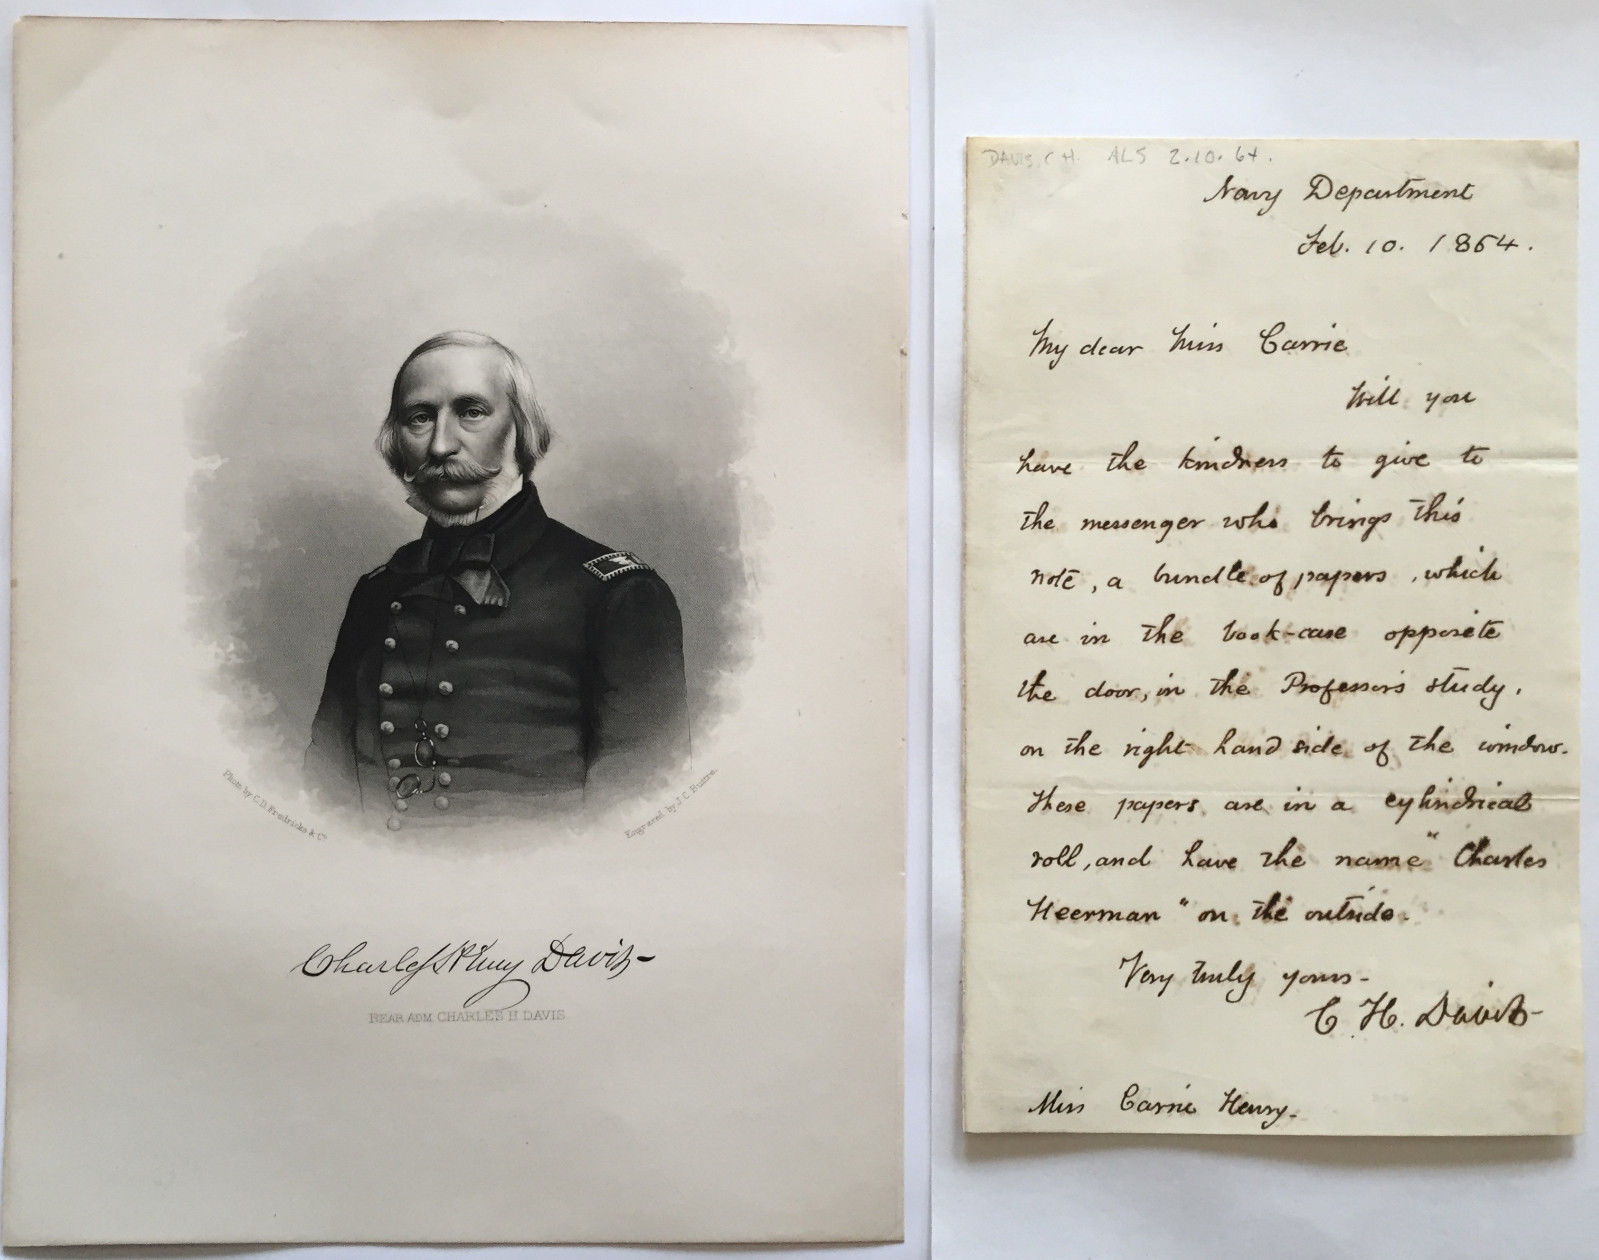 Photo by C.D. Fredricks & Co
Engraved by J.C. Buttre.
Charles Henry Davis
REAR ADM. CHARLES H DAVIS
DAVIS, C H. ALS 2.10.64.
Navy Department
Feb. 10. 1864.
My dear Miss Carrie
Will you
have the kindness to give to
the messenger who brings this
note, a bundle of papers, which
are in the book-case opposite
the door, in the Professor's study,
on the right hand side of the window.
These papers are in a cylindrical
roll, and have the name "Charles
Heerman" on the outside.
Very truly yours-
C. H. Davis-
Miss Carrie Henry-